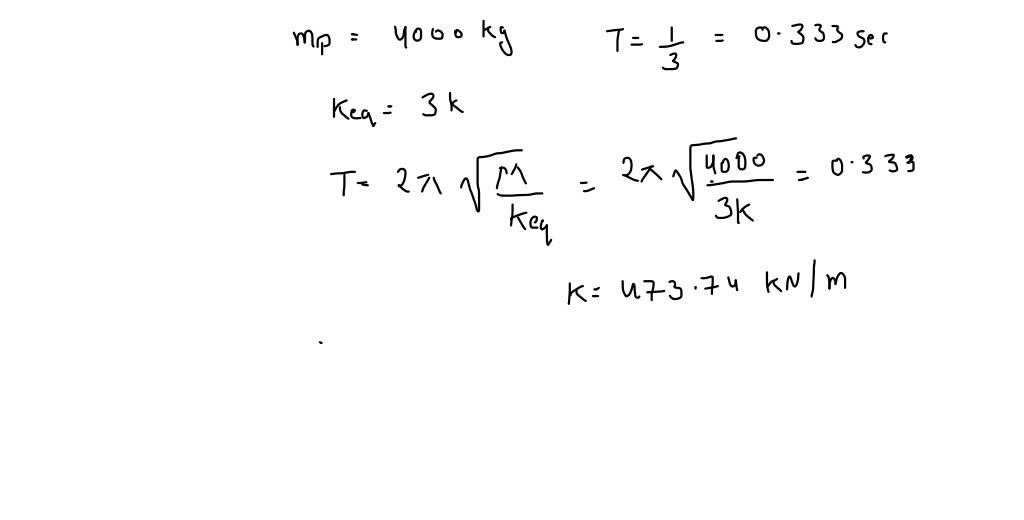 mp = 4000 kg T = 1/3 = 0.333 sec
Keq = 3k
T = 2π √(M/Keq) = 2π √(4000/3K) = 0.333
K = 473.74 kN/m